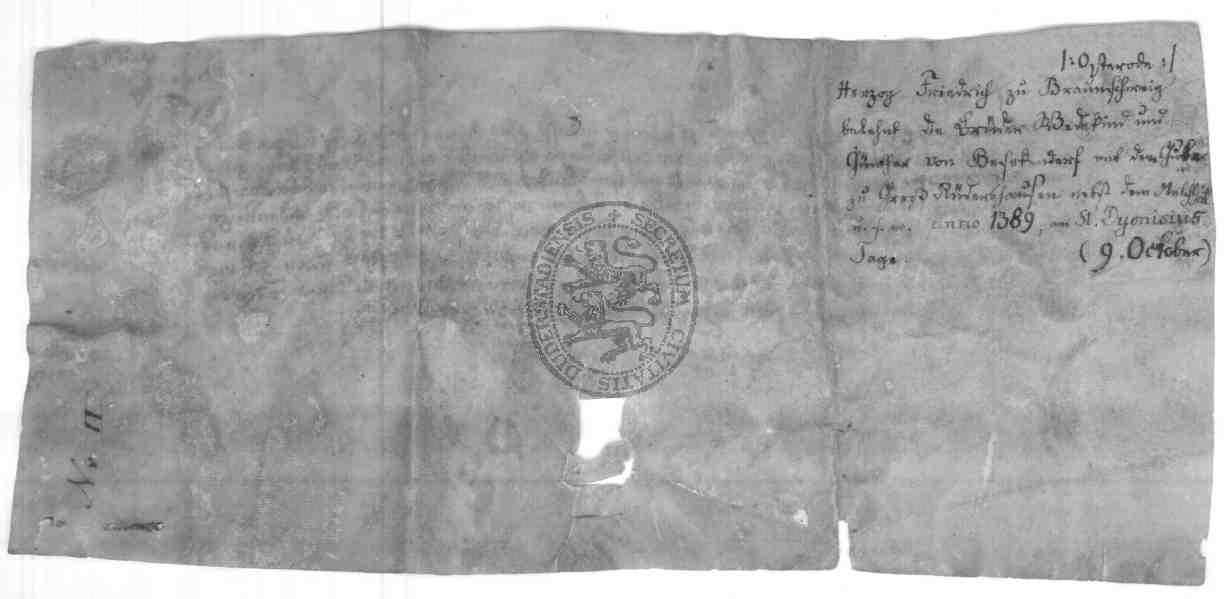 |: Osterode :|
Herzog Friedrich zu Braunschweig
belehnt die Brüder Wedekind und
Günther von mit dem
zu Groß Rüdershausen nebst dem
u. s. w. anno 1389, am St. Dyonisius
Tage. (9. October)
3
SECRETUM CIVITATIS DUDERSTADIENSIS
No. II